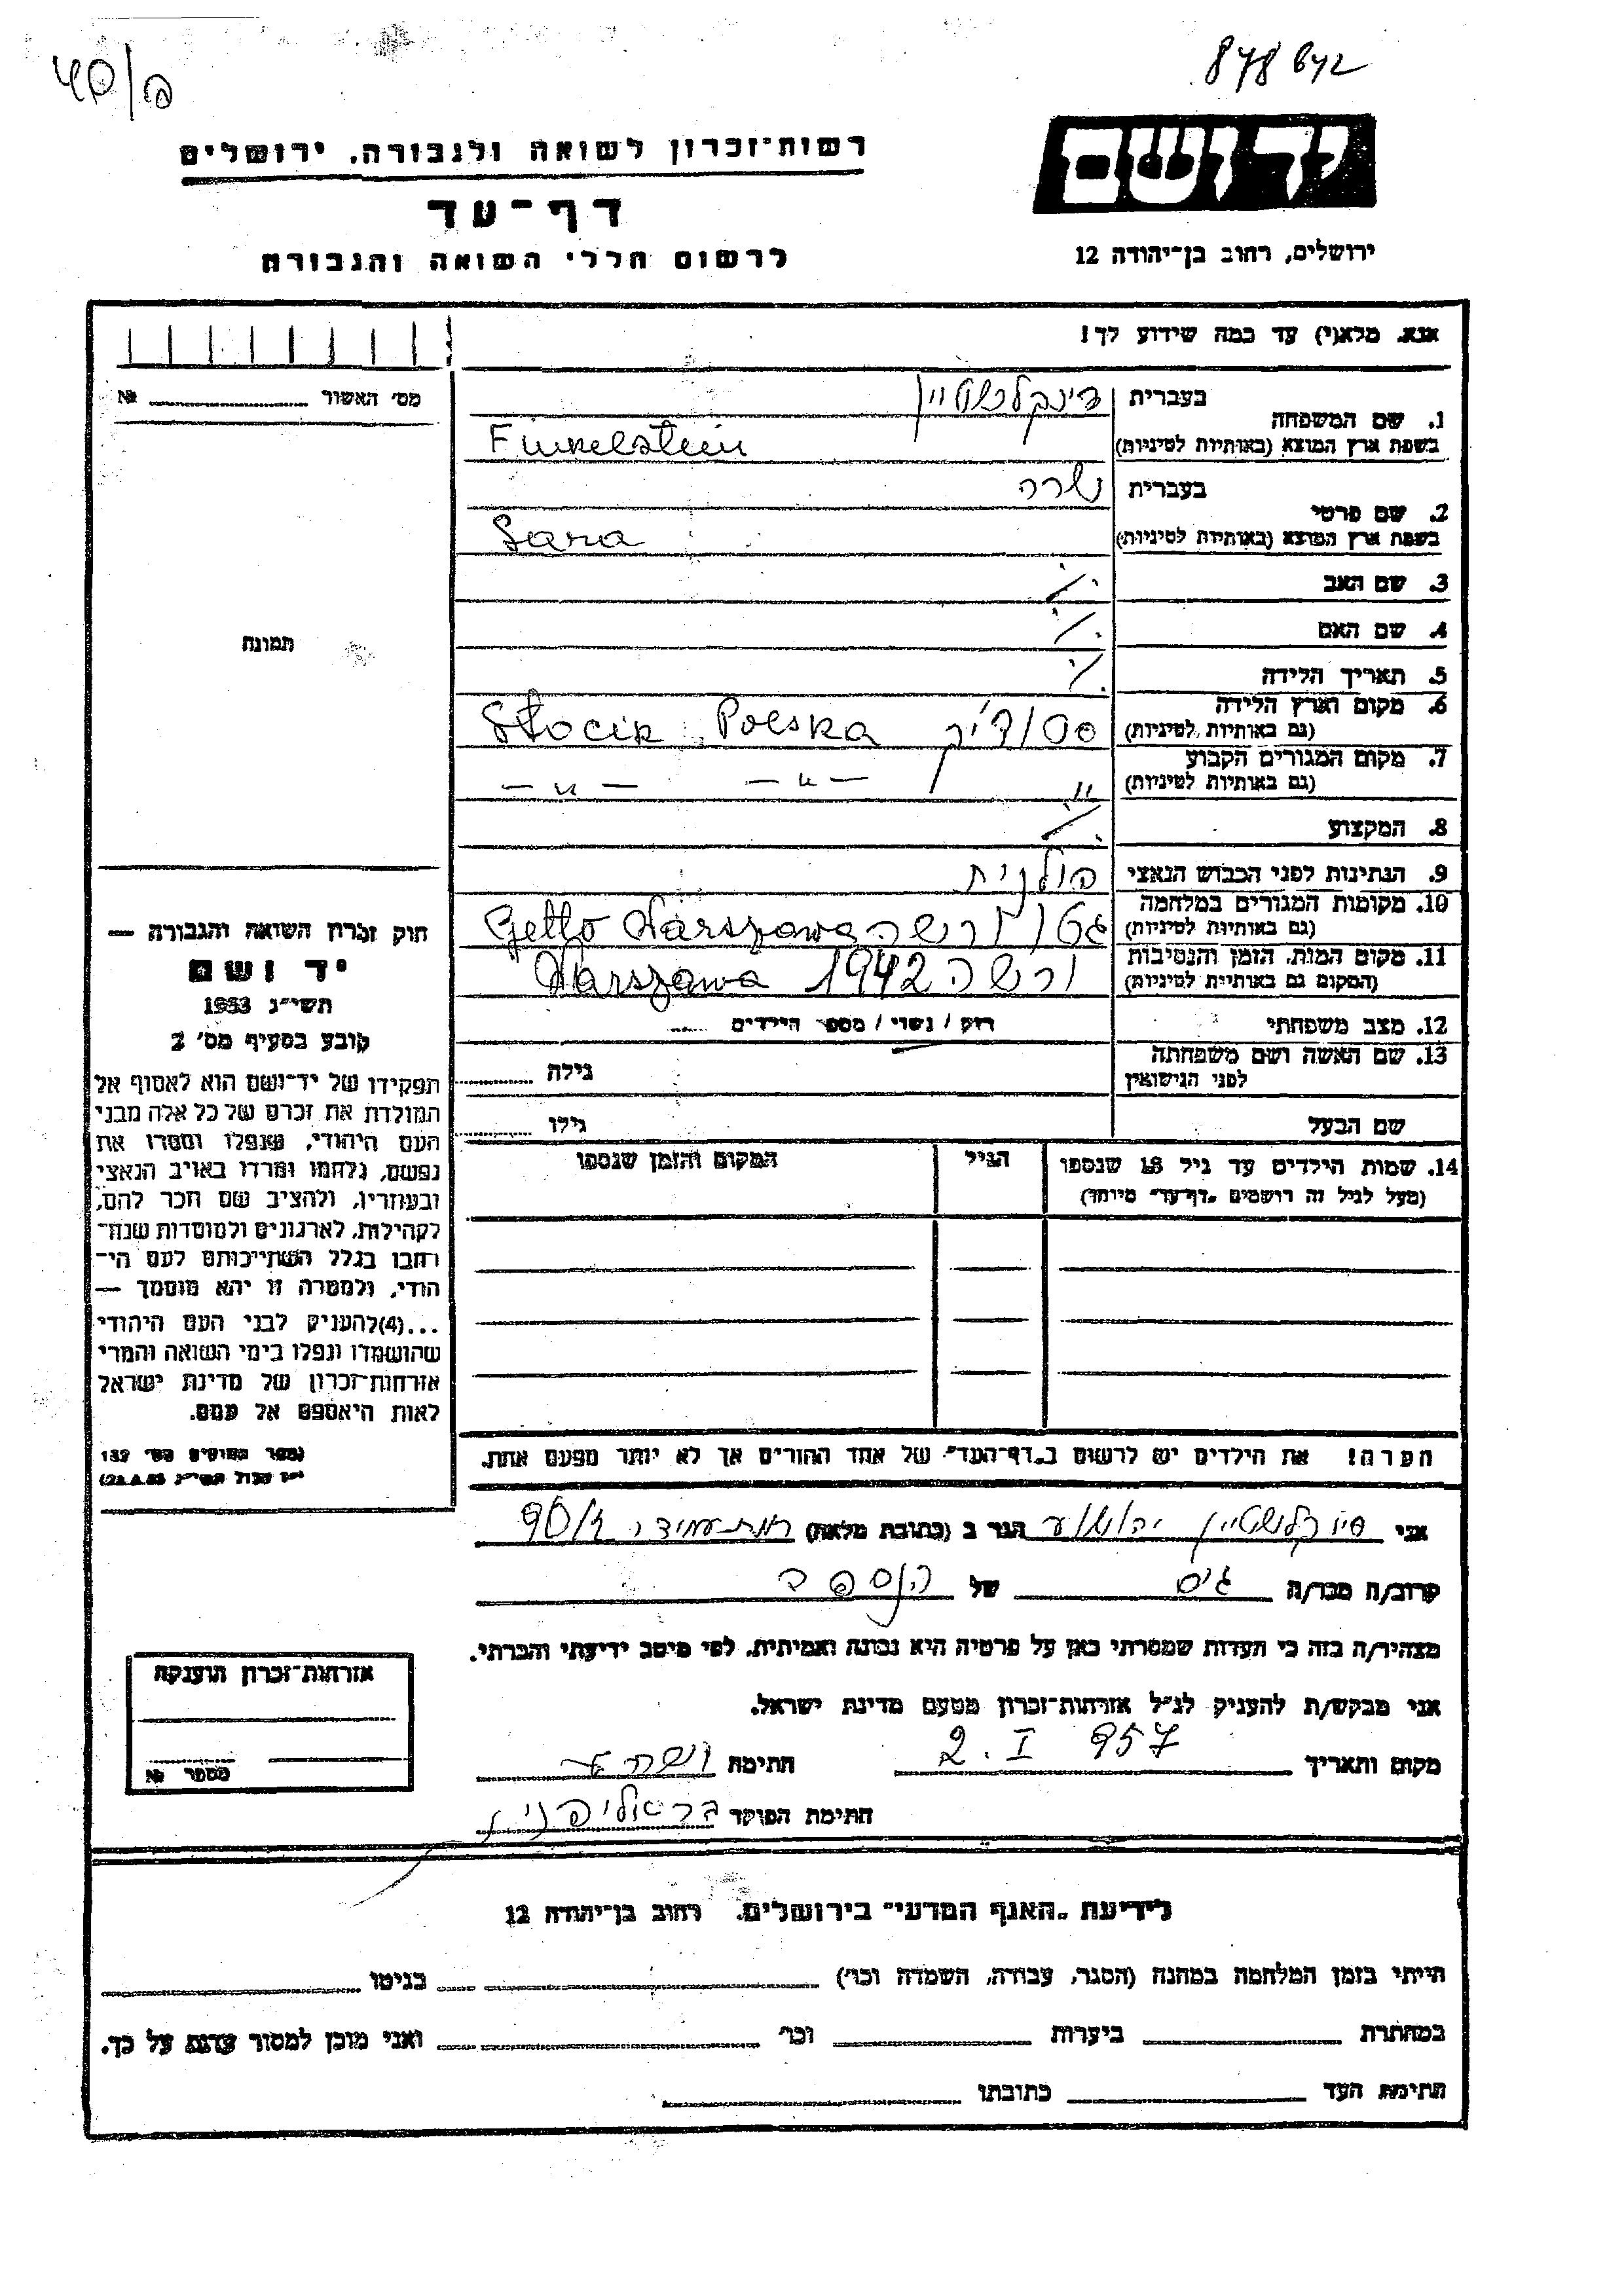 878 642
40/פ
יד ושם
רשות־זכרון לשואה ולגבורה, ירושלים
דף־עד
לרשום חללי השואה והגבורה
ירושלים, רחוב בן־יהודה 12
אנא, מלא(י) עד כמה שידוע לך!
מס' האשור № 
1. שם המשפחה
בעברית פינקלשטיין
בשפת ארץ המוצא (באותיות לטיניות) Finkelstein
2. שם פרטי
בעברית שרה
בשפת ארץ המוצא (באותיות לטיניות) Sara
3. שם האב ./.
4. שם האם ./.
5. תאריך הלידה ./.
6. מקום וארץ הלידה
(גם באותיות לטיניות) Stocik Polska
7. מקום המגורים הקבוע
(גם באותיות לטיניות) " — " — — " —
8. המקצוע ./.
9. הנתינות לפני הכבוש הנאצי פולנית
10. מקומות המגורים במלחמה
(גם באותיות לטיניות) גטו ורשה Getto Warszawa
11. מקום המות, הזמן והנסיבות
(המקום גם באותיות לטיניות) ורשה 1942 Warszawa
12. מצב משפחתי רווק / נשוי / מספר הילדים
13. שם האשה ושם משפחתה
לפני הנישואין גילה
שם הבעל גילו
14. שמות הילדים עד גיל 18 שנספו הגיל המקום והזמן שנספו
(מעל לגיל זה רושמים "דף־עד" מיוחד)
הערה! את הילדים יש לרשום ב"דף־העד" של אחד ההורים אך לא יותר מפעם אחת.
תמונה
חוק זכרון השואה והגבורה —
יד ושם
תשי"ג 1953
קובע בסעיף מס' 2
תפקידו של יד־ושם הוא לאסוף אל
המולדת את זכרם של כל אלה מבני
העם היהודי, שנפלו ומסרו את
נפשם, נלחמו ומרדו באויב הנאצי
ובעוזריו, ולהציב שם וזכר להם,
לקהילות, לארגונים ולמוסדות שנח־
רבו בגלל השתייכותם לעם הי־
הודי, ולמטרה זו יהא מוסמך —
...(4) להעניק לבני העם היהודי
שהושמדו ונפלו בימי השואה והמרי
אזרחות־זכרון של מדינת ישראל
לאות היאספם אל עמם.
(ספר החוקים מס' 132
אני פינקלשטיין יהושע הגר ב (כתובת מלאה)
קרוב/ה מכר/ה גיס של הנספה
מצהיר/ה בזה כי העדות שמסרתי כאן על פרטיה היא נכונה ואמיתית, לפי מיטב ידיעתי והכרתי.
אני מבקש/ת להעניק לנ"ל אזרחות־זכרון מטעם מדינת ישראל.
מקום ותאריך 2. I 957 חתימה
חתימת הפוקד
אזרחות־זכרון הוענקה
מספר №
לידיעת "האגף המדעי" בירושלים, רחוב בן־יהודה 12
הייתי בזמן המלחמה במחנה (הסגר, עבודה, השמדה וכו') בגיטו
במחתרת ביערות וכו' ואני מוכן למסור עדות על כך.
חתימת העד כתובתו